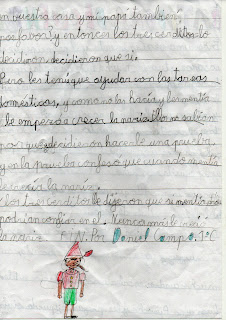 en nuestra casa y mi mapá también
por favor! y entonces los tres cerditos lo
decidieron decidieron que si.
Pero les tenia que ayudar con las tareas
domesticos, y como no las hacía y les mentia
le empezo a crecer la nariz
por que decidieron hacerle una prueba
y en la prueba confeso que cuando mentia
le crecía la nariz.
los tres cerditos le dijeron que si mentia no
podrian confiar en el. Nunca mas le creció
la nariz. FIN. Por Daniel Campo. 3ºC